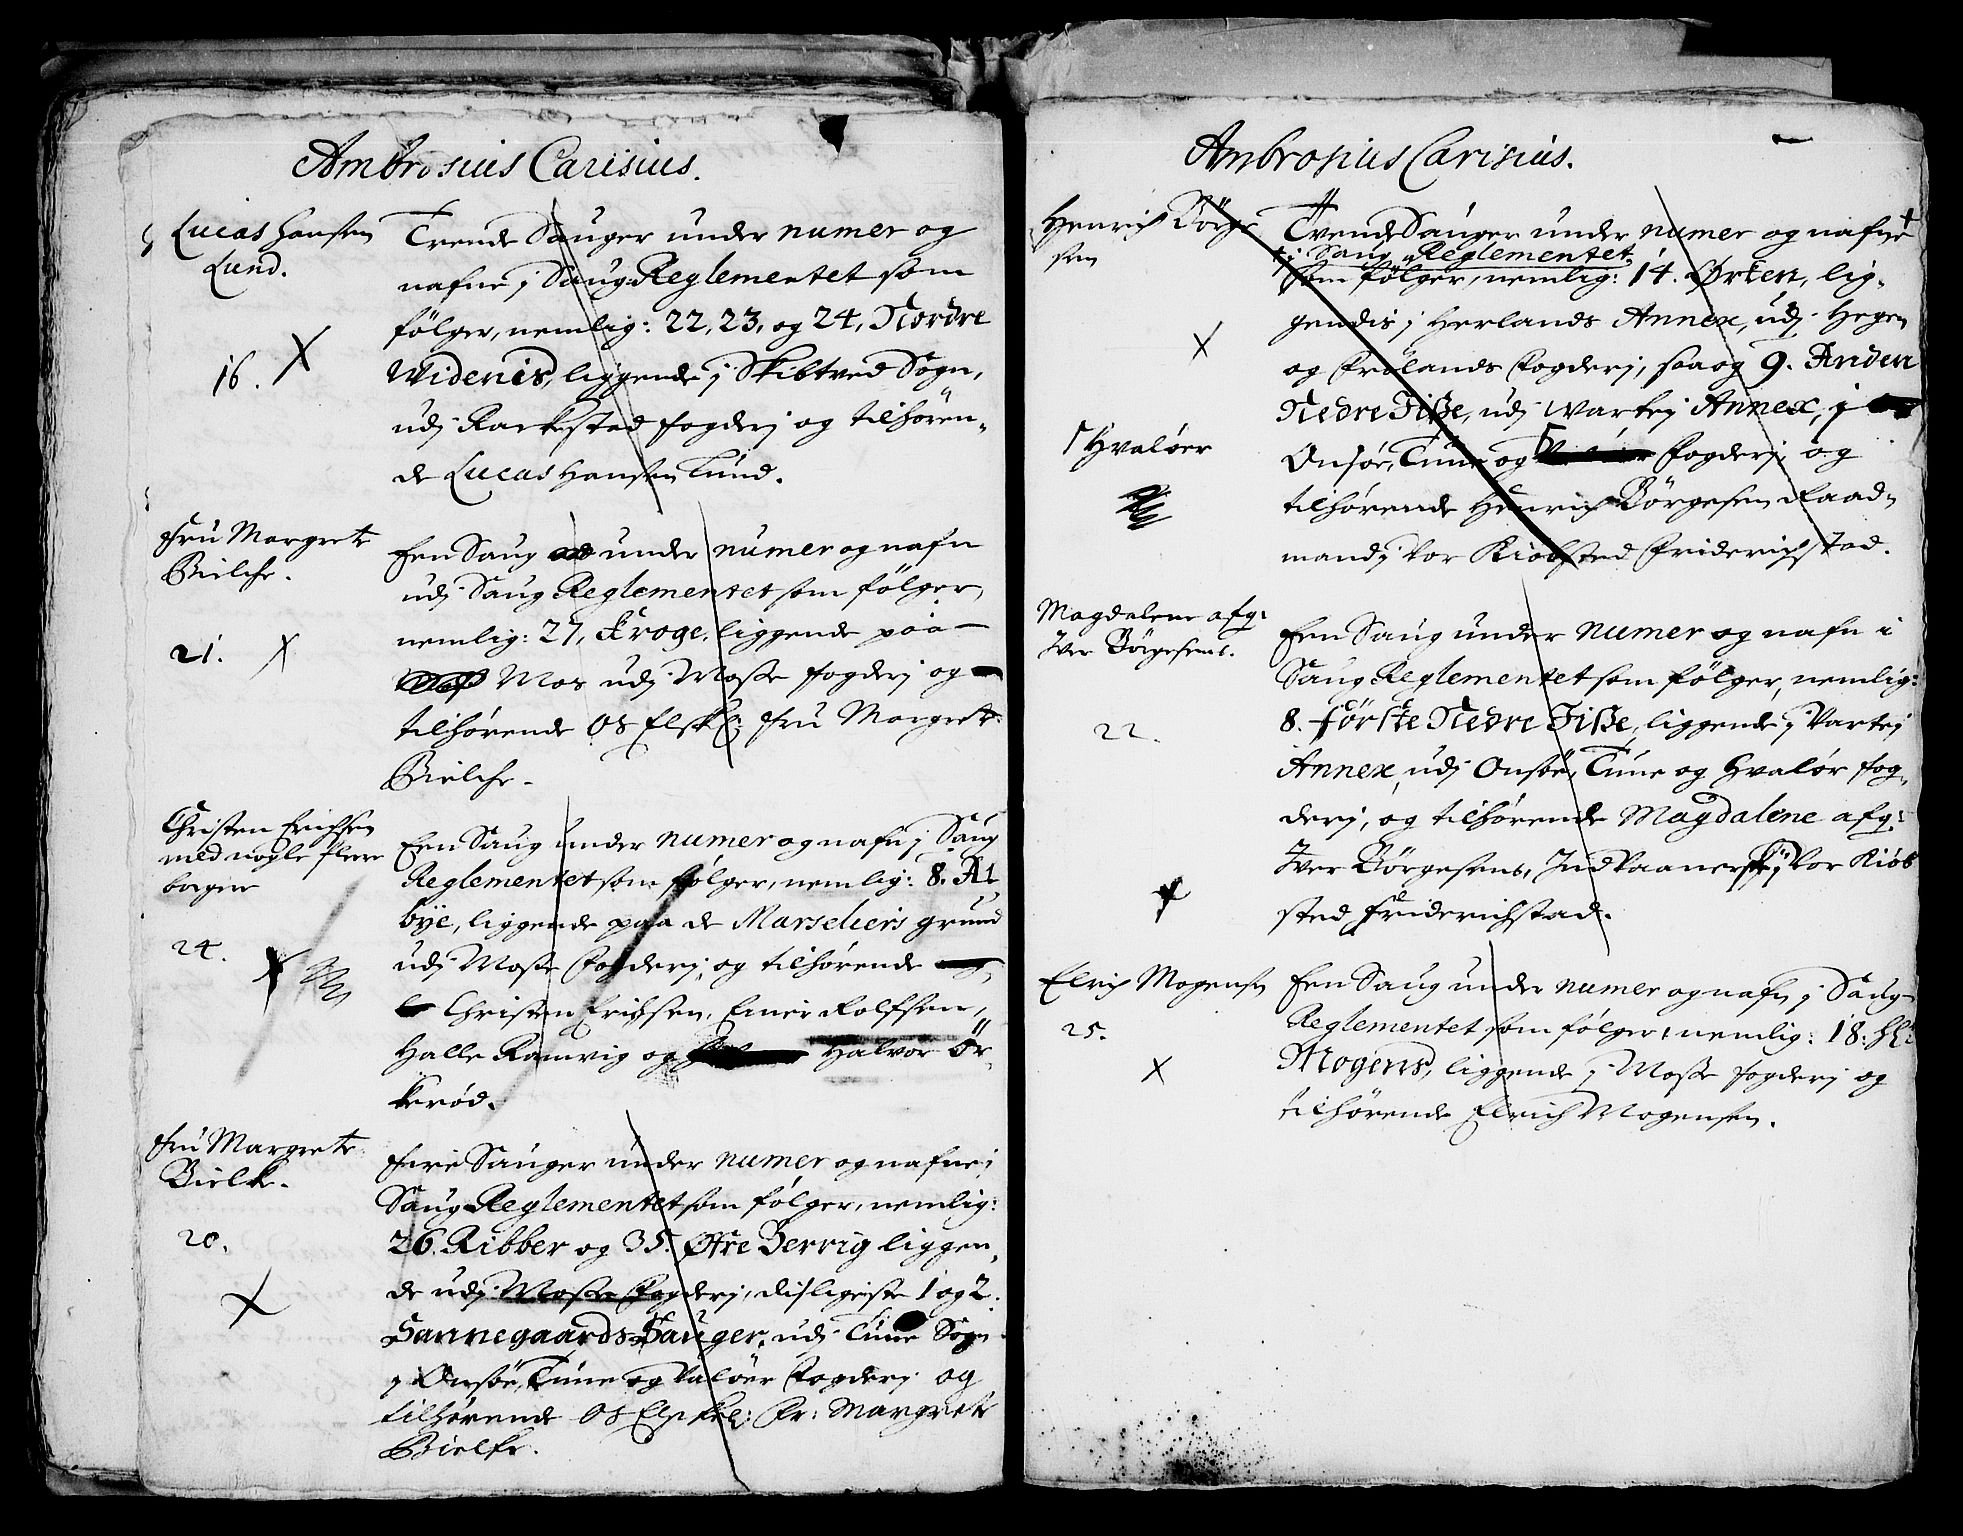 Ambrosius Carisius.
Lucas Hansen
Lund.
16.
Trende Sauger under numer og
nafne j Saug Reglementet som
fölger, nemlig: 22, 23, og 24, Nordre
Widenes, liggende j Skibtved Sogn,
udj Rackestad fogderj og tilhören-
de Lucas Hansen Lund.
Fru Margrete
Bielche.
21.
Een Saug under numer og nafn
udj Saug Reglementet som fölger,
nemlig: 27, Kroge, liggende paa
Mos udj Mosse fogderj og
tilhørende Os Elskl: Fru Margrete
Bielche.
Christen Erichsen
med nogle flere
borger
24.
Een Saug under numer og nafn j Saug
Reglementet som fölger, nemlig: 8. Al
bye, liggende paa de Marseliers grund
udj Mosse Fogderj, og tilhørende
Christen Erichsen, Einer Rolfsen,
Halle Ramvig og Halvor Ör-
kerød.
Fru Margrete
Bielke.
20.
Fire Sauger under numer og nafne j
Saug Reglementet som fölger, nemlig:
26. Ribber og 35. Øfre Berrig liggen-
de udj Mosse Fogderj, disligeste 1 og 2.
Sannegaards Sauger, udj Tune Sogn
j Onsöe, Tune og Valöer Fogderj og
tilhørende Os Elskel: Fr: Margrete
Bielke.
Ambrosius Carisius.
Henrich Börge
sen
Hvalöer
Tvende Sauger under numer og nafne
j Saug Reglementet
som fölger, nemlig: 14. Ørken, lig-
gendis j Herlands Annex, udj Hegen
og Frölands Fogderj, saa og 9. Anden
Nedre Fisse, udj Wartej Annex, j
Onsöe, Tune og Fogderj og
tilhørende Henrich Börgesen Raad-
mand j vor Kiöbsted Friderichstad.
Magdalene afg:
Iver Börgesens.
22.
Een Saug under numer og nafn i
Saug Reglementet som fölger, nemlig:
8. förske Nedre Fisse, liggende j Vartej
Annex, udj Onsöe, Tune og Hvalör fog-
derj, og tilhørende Magdalene afg:
Iver Börgesens, Indvaanerske j vor Kiöb
sted Friderichstad.
Elrich Mogensen
25.
Een Saug under numer og nafn j Saug
Reglementet som fölger, nemlig: 18. Hl:
Mogens, liggende j Mosse fogderj og
tilhörende Elrich Mogensen.